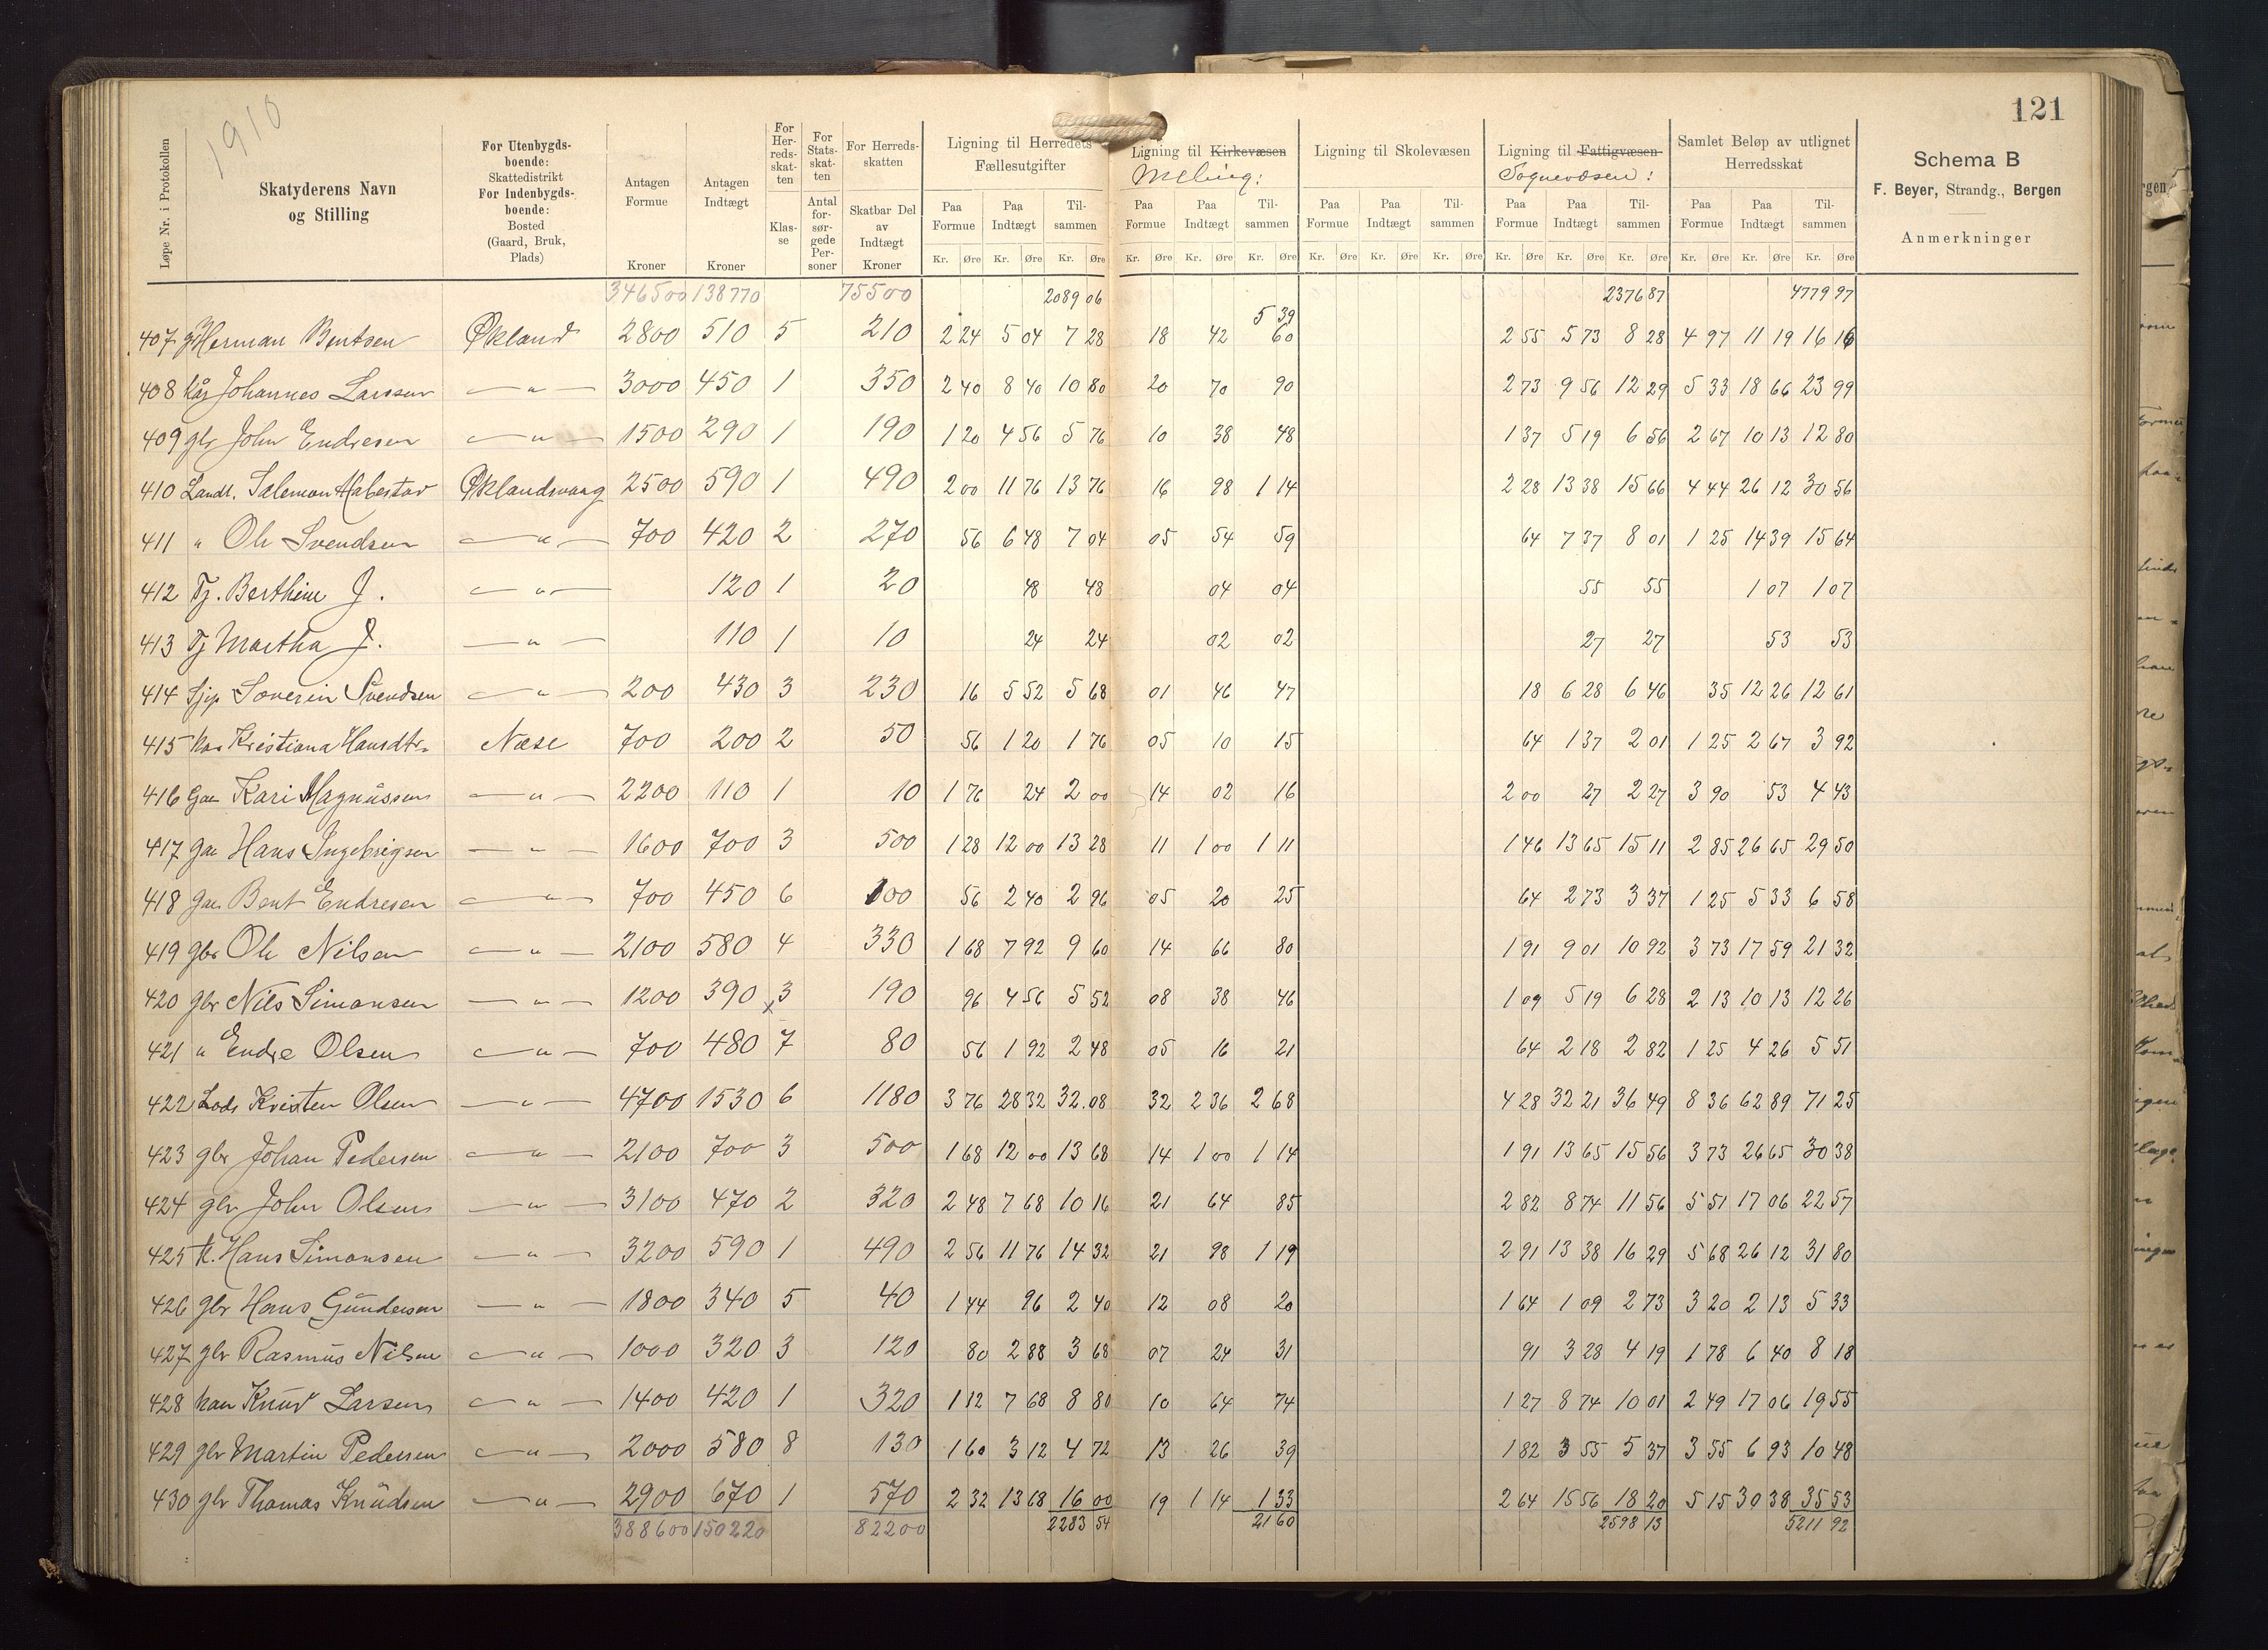 1910
121
Løpe Nr. i Protokollen
Skatyderens Navn og Stilling
For Utenbygds-boende: Skattedistrikt For Indenbygds-boende: Bosted (Gaard, Bruk, Plads)
Antagen Formue Kroner
Antagen Indtægt Kroner
For Her-reds-skat-ten Klas-se
For Stats-skat-ten Antal for-sør-gede Per-soner
For Herreds-skatten Skatbar Del av Indtægt Kroner
Ligning til Herredets Fællesutgifter
Ligning til Kirkevæsen
Meling:
Ligning til Skolevæsen
Ligning til Fattigvæsen
Sognevæsen:
Samlet Beløp av utlignet Herredsskat
Paa Formue Paa Indtægt Til-sammen Paa Formue Paa Indtægt Til-sammen Paa Formue Paa Indtægt Til-sammen Paa Formue Paa Indtægt Til-sammen Paa Formue Paa Indtægt Til-sammen
Kr. Øre Kr. Øre Kr. Øre Kr. Øre Kr. Øre Kr. Øre Kr. Øre Kr. Øre Kr. Øre Kr. Øre Kr. Øre Kr. Øre Kr. Øre Kr. Øre Kr. Øre
Schema B
F. Beyer, Strandg., Bergen
Anmerkninger
346500 138770 75500 2089 06 5 39 2376 87 4779 97
407 Herman Bentsen Økland 2800 510 5 210 2 24 5 04 7 28 18 42 60 2 55 5 73 8 28 4 97 11 19 16 16
408 kår Johannes Larssen — " — 3000 450 1 350 2 40 8 40 10 80 20 70 90 2 73 9 56 12 29 5 33 18 66 23 99
409 gbr John Endresen — " — 1500 290 1 190 1 20 4 56 5 76 10 38 48 1 37 5 19 6 56 2 67 10 13 12 80
410 Landh. Salemon Habestad Øklandsvaag 2500 590 1 490 2 00 11 76 13 76 16 98 1 14 2 28 13 38 15 66 4 44 26 12 30 56
411 " Ole Svendsen — " — 700 420 2 270 56 6 48 7 04 05 54 59 64 7 37 8 01 1 25 14 39 15 64
412 Tj. Berthine J. — " — 120 1 20 48 48 04 04 55 55 1 07 1 07
413 Tj Martha J. — " — 110 1 10 24 24 02 02 27 27 53 53
414 Sjp Soverin Svendsen — " — 200 430 3 230 16 5 52 5 68 01 46 47 18 6 28 6 46 35 12 26 12 61
415 kaa Kristiana Hansdtr. Næse 700 200 2 50 56 1 20 1 76 05 10 15 64 1 37 2 01 1 25 2 67 3 92
416 Gae Kari Magnüssen — " — 2200 110 1 10 1 76 24 2 00 14 02 16 2 00 27 2 27 3 90 53 4 43
417 gae Hans Ingebrigsen — " — 1600 700 3 500 1 28 12 00 13 28 11 1 00 1 11 1 46 13 65 15 11 2 85 26 65 29 50
418 gae Bent Endresen — " — 700 450 6 100 56 2 40 2 96 05 20 25 64 2 73 3 37 1 25 5 33 6 58
419 gbr Ole Nilsen — " — 2100 580 4 330 1 68 7 92 9 60 14 66 80 1 91 9 01 10 92 3 73 17 59 21 32
420 gbr Nils Simonsen — " — 1200 390 x 3 190 96 4 56 5 52 08 38 46 1 09 5 19 6 28 2 13 10 13 12 26
421 " Endre Olsen — " — 700 480 7 80 56 1 92 2 48 05 16 21 64 2 18 2 82 1 25 4 26 5 51
422 Lods Kristen Olsen — " — 4700 1530 6 1180 3 76 28 32 32.08 32 2 36 2 68 4 28 32 21 36 49 8 36 62 89 71 25
423 gbr Johan Pedersen — " — 2100 700 3 500 1 68 12 00 13 68 14 1 00 1 14 1 91 13 65 15 56 3 73 26 65 30 38
424 gbr John Olsen — " — 3100 470 2 320 2 48 7 68 10 16 21 64 85 2 82 8 74 11 56 5 51 17 06 22 57
425 k. Hans Simonsen — " — 3200 590 1 490 2 56 11 76 14 32 21 98 1 19 2 91 13 38 16 29 5 68 26 12 31 80
426 gbr Hans Gündersen — " — 1800 340 5 40 1 44 96 2 40 12 08 20 1 64 1 09 2 73 3 20 2 13 5 33
427 gbr Rasmüs Nilsen — " — 1000 320 3 120 80 2 88 3 68 07 24 31 91 3 28 4 19 1 78 6 40 8 18
428 kaar Knüd Larsen — " — 1400 420 1 320 1 12 7 68 8 80 10 64 74 1 27 8 74 10 01 2 49 17 06 19 55
429 gbr Martin Pedersen — " — 2000 580 8 130 1 60 3 12 4 72 13 26 39 1 82 3 55 5 37 3 55 6 93 10 48
430 gbr Thomas Knüdsen — " — 2900 670 1 570 2 32 13 68 16 00 19 1 14 1 33 2 64 15 56 18 20 5 15 30 38 35 53
388600 150220 82200 2283 54 21 60 2598 13 5211 92